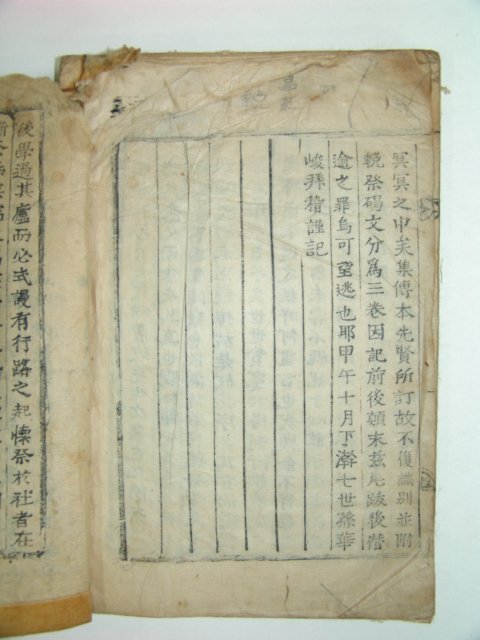 冥冥之中矣集傳本先賢所訂故不復識別並附
輓祭碣文分爲三卷因記前後顛末玆尾跋後僭
逾之罪烏可望逃也耶甲午十月下澣七世孫華
峻拜稽謹記
後學過其廬而必式謾有行路之起懷祭於社者在